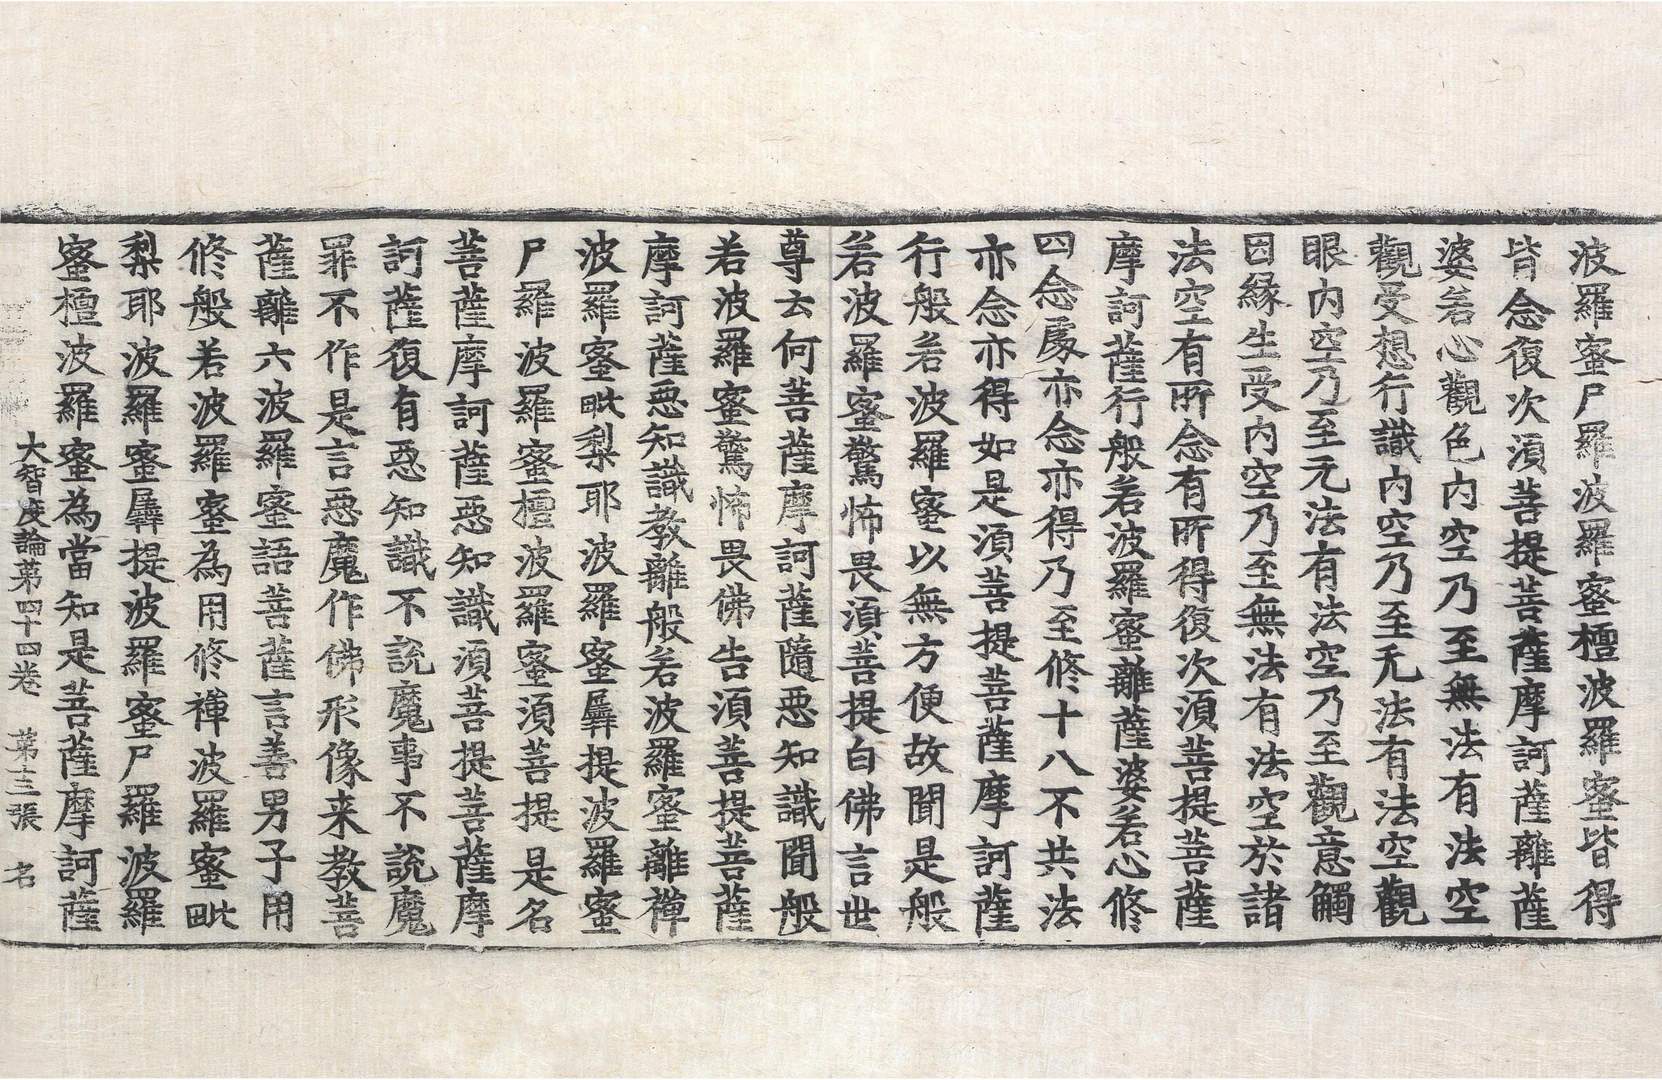 波羅蜜尸羅波羅蜜檀波羅蜜皆得
皆念復次湏菩提菩薩摩訶薩離薩
婆若心觀色內空乃至無法有法空
觀受想行識內空乃至无法有法空觀
眼內空乃至无法有法空乃至觀意觸
因緣生受內空乃至無法有法空於諸
法空有所念有所得復次湏菩提菩薩
摩訶薩行般若波羅蜜離薩婆若心修
四念處亦念亦得乃至修十八不共法
亦念亦得如是湏菩提菩薩摩訶薩
行般若波羅蜜以無方便故聞是般
若波羅蜜驚怖畏湏菩提白佛言世
尊云何菩薩摩訶薩隨惡知識聞般
若波羅蜜驚怖畏佛告湏菩提菩薩
摩訶薩惡知識教離般若波羅蜜離禪
波羅蜜毗梨耶波羅蜜羼提波羅蜜
尸羅波羅蜜檀波羅蜜湏菩提是名
菩薩摩訶薩惡知識湏菩提菩薩摩
訶薩復有惡知識不說魔事不說魔
罪不作是言惡魔作佛形像来教菩
薩離六波羅蜜語菩薩言善男子用
修般若波羅蜜為用修禪波羅蜜毗
梨耶波羅蜜羼提波羅蜜尸羅波羅
蜜檀波羅蜜為當知是菩薩摩訶薩
大智度論第四十四卷 第十三張 名